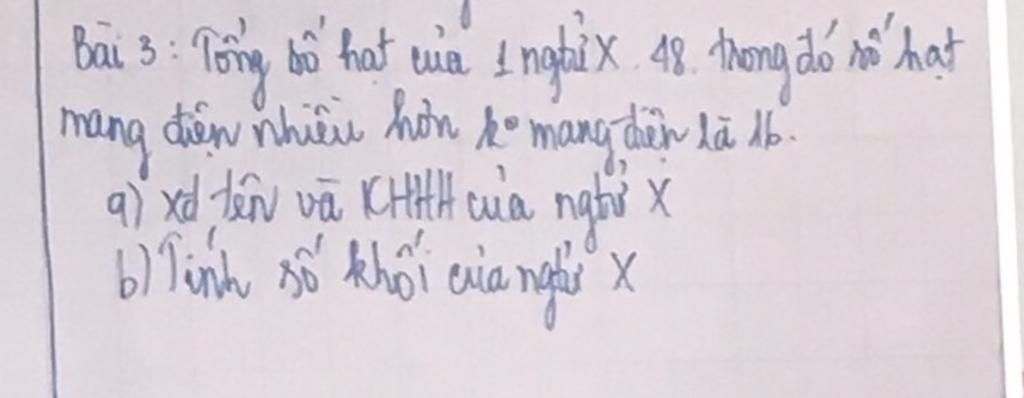 Bài 3: Tổng số hạt của 1 ngtử X 48. trong đó số hạt
mang điện nhiều hơn ko mang điện là 16.
a) xđ tên và KHHH của ngtử X
b) Tính số khối của ngtử X